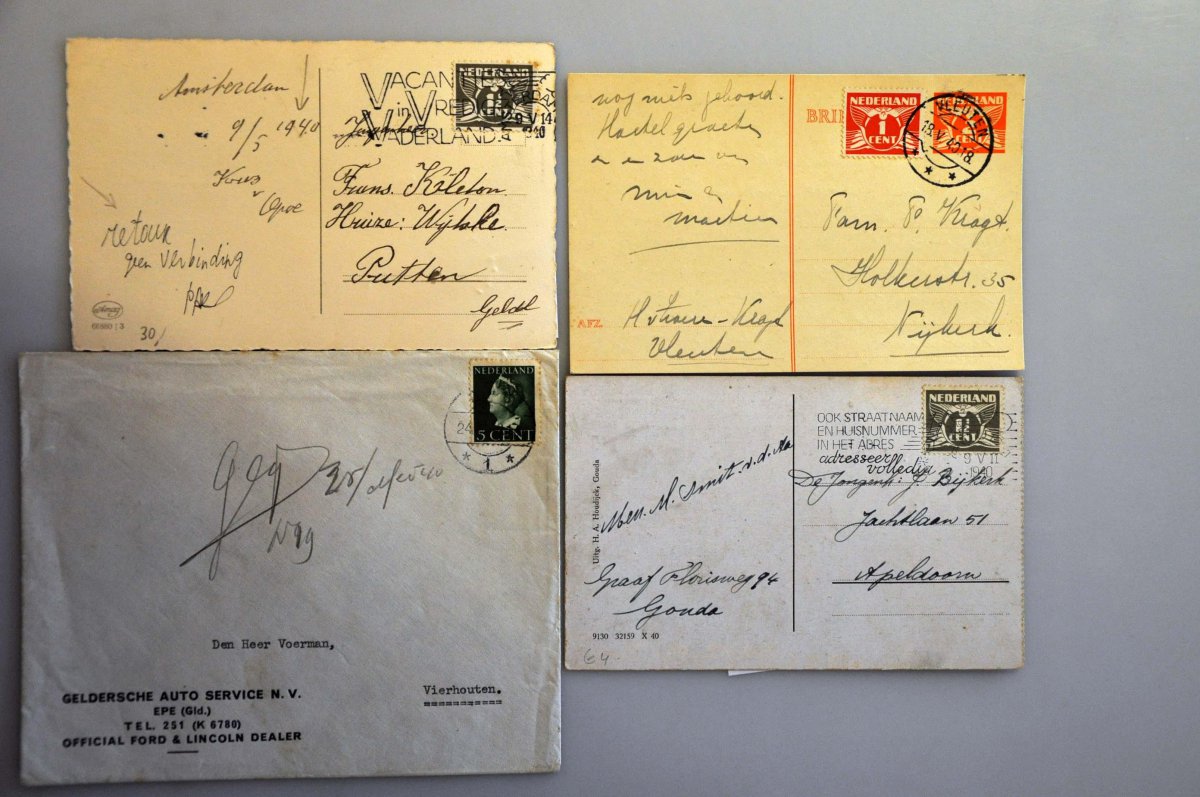 Amsterdam
9/5 1940
Opoe
retour
geen verbinding
66880 | 3
30,
VACANTIE
in VREDIG
VADERLAND.
NEDERLAND
9 V 14
1940
Frans. Kôleton
Huize: Wijtske.
Putten
Geldl
nog niets gehoord.
Hartel groeten
AFZ.
Vleuten
BRIE
NEDERLAND
1
CENT
VLEUTEN
18 V 40 18
Fam. P. Kragt.
Holkerstr. 35
Nijkerk.
NEDERLAND
5 CENT
24
1
Den Heer Voerman,
Vierhouten.
GELDERSCHE AUTO SERVICE N. V.
EPE (Gld.)
TEL. 251 (K 6780)
OFFICIAL FORD & LINCOLN DEALER
Uitg. H. A. Houdijck, Gouda
Mej. M. Smit v. d. Aa
Graaf Florisweg 94
Gouda
9130 32159 X 40
64
OOK STRAATNAAM
EN HUISNUMMER
IN HET ADRES
adresseer
volledig
NEDERLAND
1½
CENT
9 V 11
1940
De Jongeh: J. Bijkerk
Jachtlaan 51
Apeldoorn